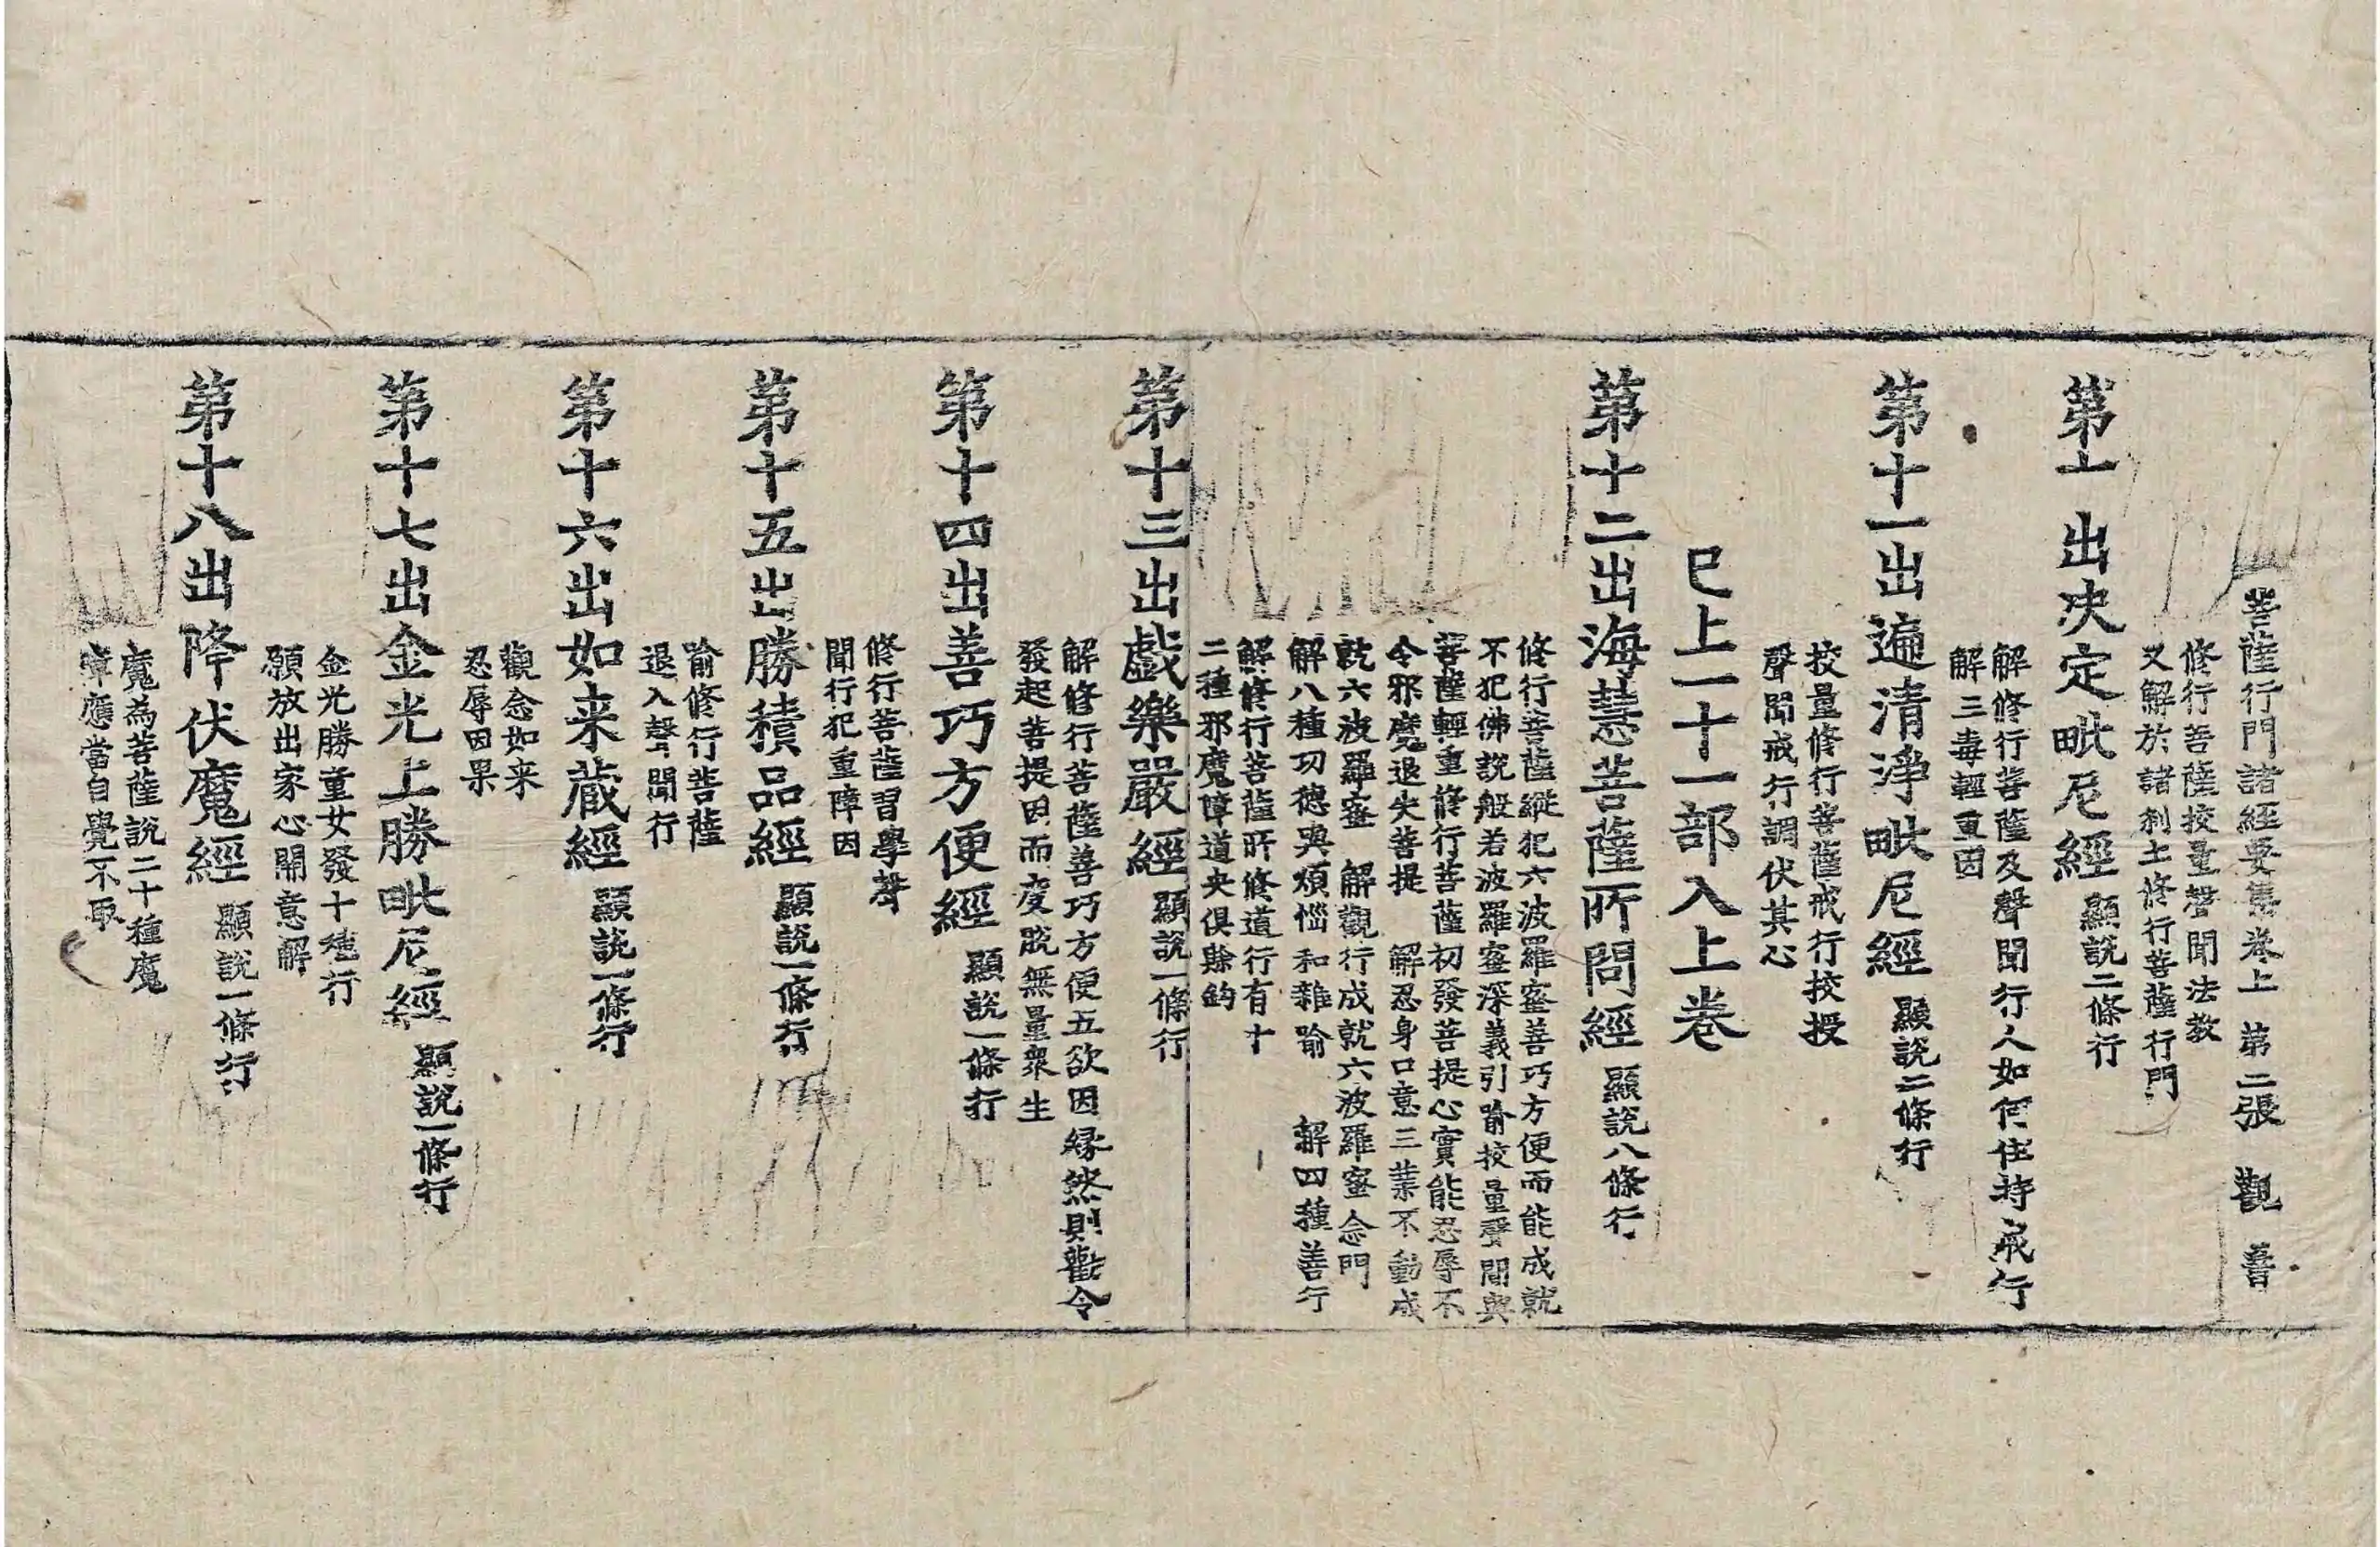 菩薩行門諸經要集卷上 第二張 觀 善
修行菩薩校量聲聞法教
又解於諸刹土修行菩薩行門
第十 出决定毗尼經 顯説二條行
解修行菩薩及聲聞行人如何住持戒行
解三毒輕重因
第十一出遍清淨毗尼經 顯説二條行
校量修行菩薩戒行挍授
聲聞戒行調伏其心
已上一十一部入上卷
第十二出海慧菩薩所問經 顯説八條行
修行菩薩縱犯六波羅蜜善巧方便而能成就
不犯佛説般若波羅蜜深義引喻挍量聲聞與
菩薩輕重修行菩薩初發菩提心實能忍辱不
令邪魔退失菩提 解忍身口意三業不動成
就六波羅蜜 解觀行成就六波羅蜜念門
解八種功德與煩惱和雜喻 解四種善行
解修行菩薩所修道行有十
二種邪魔障道夬俱賒鈎
第十三出戯樂嚴經 顯説一條行
解修行菩薩善巧方便五欲因緣然則勸令
發起菩提因而度脱無量衆生
第十四出善巧方便經 顯説一條行
修行菩薩習學聲
聞行犯重障因
第十五出勝積品經 顯説一條行
喻修行菩薩
退入聲聞行
第十六出如来蔵經 顯説一條行
觀念如来
忍辱因果
第十七出金光上勝毗尼經 顯説一條行
金光勝童女發十種行
願放出家心開意解
第十八出降伏魔經 顯説一條行
魔為菩薩説二十種魔
障應當自覺不取